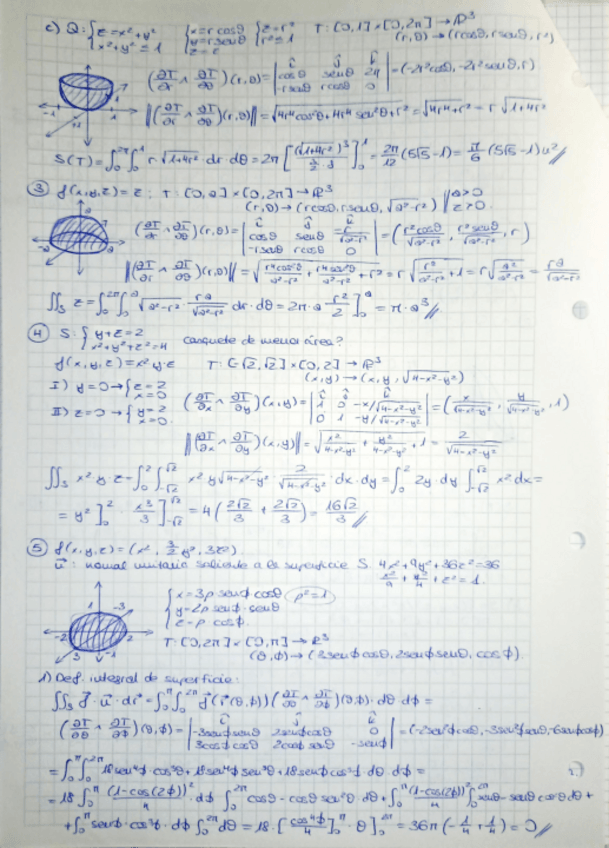 c) Q: { z = x²+y² ; x²+y² ≤ 1   { x = r cosθ ; y = r senθ ; z = z   { z = r² ; r² ≤ 1   T: [0,1]×[0,2π] → ℝ³
(r,θ) → (r cosθ, r senθ, r²)
(∂T/∂r ∧ ∂T/∂θ)(r,θ) = | i j k ; cosθ senθ 2r ; -r senθ r cosθ 0 | = (-2r² cosθ, -2r² senθ, r)
‖(∂T/∂r ∧ ∂T/∂θ)(r,θ)‖ = √(4r⁴cos²θ + 4r⁴ sen²θ + r²) = √(4r⁴+r²) = r √(1+4r²)
S(T) = ∫₀^2π ∫₀^1 r √(1+4r²) · dr · dθ = 2π [ ]₀^1 = 2π/12 (5√5 - 1) = π/6 (5√5 - 1) u²//
③ f(x,y,z) = z ; T: [0,a]×[0,2π] → ℝ³
(r,θ) → (r cosθ, r senθ, √(a²-r²)) ‖ a>0 z≥0
(∂T/∂r ∧ ∂T/∂θ)(r,θ) = | i j k ; cosθ senθ -r/√(a²-r²) ; -r senθ r cosθ 0 | = (r² cosθ/√(a²-r²), r² senθ/√(a²-r²), r)
‖(∂T/∂r ∧ ∂T/∂θ)(r,θ)‖ = √(r⁴cos²θ/(a²-r²) + r⁴sen²θ/(a²-r²) + r²) = r √(r²/(a²-r²) + 1) = r √(a²/(a²-r²)) = ra/√(a²-r²)
∬_S z = ∫₀^2π ∫₀^a √(a²-r²) · ra/√(a²-r²) · dr · dθ = 2π · a · r²/2 ]₀^a = π · a³//
④ S: { y+z = 2 ; x²+y²+z² = 4   casquete de menor área?
f(x,y,z) = x² y z   T: [-√2,√2]×[0,2] → ℝ³
(x,y) → (x, y, √(4-x²-y²))
I) y=0 → { z=2 ; x=0
II) z=0 → { y=2 ; x=0   (∂T/∂x ∧ ∂T/∂y)(x,y) = | i j k ; 1 0 -x/√(4-x²-y²) ; 0 1 -y/√(4-x²-y²) | = (x/√(4-x²-y²), y/√(4-x²-y²), 1)
‖(∂T/∂x ∧ ∂T/∂y)(x,y)‖ = √(x²/(4-x²-y²) + y²/(4-x²-y²) + 1) = 2/√(4-x²-y²)
∬_S x² · y · z = ∫₀^2 ∫_-√2^√2 x² · y √(4-x²-y²) · 2/√(4-x²-y²) · dx · dy = ∫₀^2 2y · dy ∫_-√2^√2 x² dx =
= y² ]₀^2 · x³/3 ]_-√2^√2 = 4 (2√2/3 + 2√2/3) = 16√2/3 //
⑤ f(x,y,z) = (x², 3/2 y², 3z²)
u⃗: normal unitario saliente a la superficie S. 4x²+9y²+36z² = 36
x²/9 + y²/4 + z² = 1.
{ x = 3ρ senφ cosθ   ρ²=1
y = 2ρ senφ · senθ
z = ρ cosφ.
T: [0,2π]×[0,π] → ℝ³
(θ,φ) → (2senφ cosθ, 2senφ senθ, cosφ).
1) Def. integral de superficie:
∬_S f⃗ · u⃗ · dr⃗ = ∫₀^π ∫₀^2π f⃗(r⃗(θ,φ)) (∂T/∂θ ∧ ∂T/∂φ)(θ,φ) · dθ dφ =
(∂T/∂θ ∧ ∂T/∂φ)(θ,φ) = | i j k ; -3senφ senθ 2senφ cosθ 0 ; 3cosφ cosθ 2cosφ senθ -senφ | = (-2sen²φ cosθ, -3sen²φ senθ, -6senφ cosφ)
= ∫₀^π ∫₀^2π 18 sen⁴φ · cos³θ + 18 sen⁴φ sen³θ + 18 senφ cos³φ · dθ dφ =
= 18 ∫₀^π (1-cos(2φ))²/4 · dφ ∫₀^2π cosθ - cosθ sen²θ · dθ + ∫₀^π (1-cos(2φ))²/4 ∫₀^2π senθ - senθ cos²θ dθ +
+ ∫₀^π senφ · cos³φ · dφ ∫₀^2π dθ = 18 · [cos⁴φ/4]₀^π · θ]₀^2π = 36π (-1/4 + 1/4) = 0//